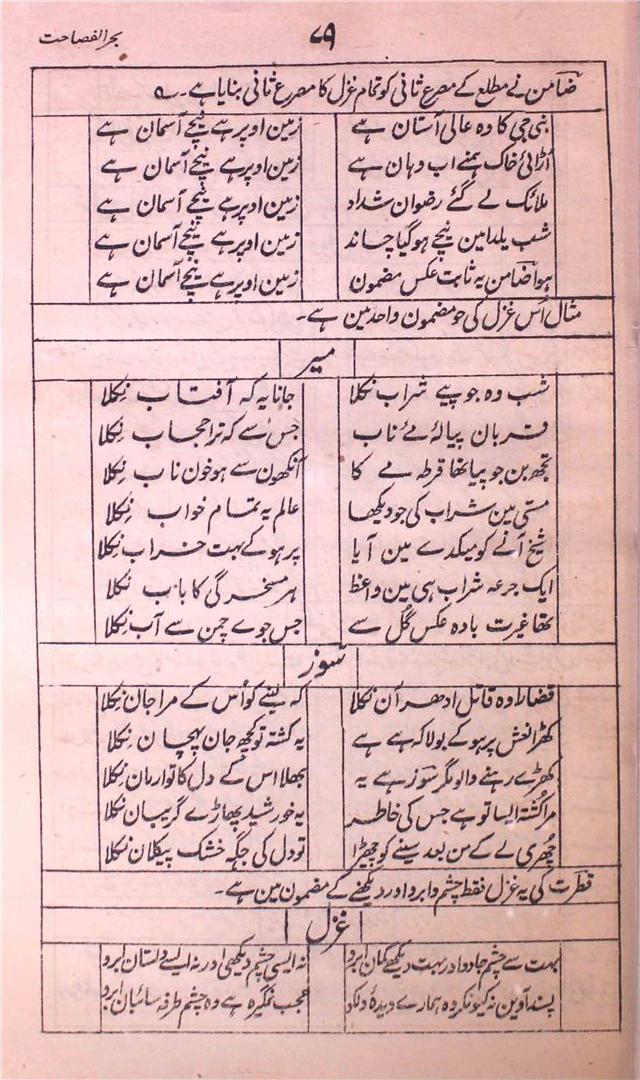 بحر الفصاحت
۷۹
ضامن نے مطلع کے مصرع ثانی کو تمام غزل کا مصرع ثانی بنایا ہے۔ ؎
بنی جی کا وہ عالی آستان ہے زمین اوپر ہے نیچے آسمان ہے
اُڑائی خاک ہمنے اب وہان ہے زمین اوپر ہے نیچے آسمان ہے
ملائک لے گئے رضوان شداد زمین اوپر ہے نیچے آسمان ہے
شب یلدا مین نیچے ہو گیا چاند زمین اوپر ہے نیچے آسمان ہے
ہوا ضامن یہ ثابت عکس مضمون زمین اوپر ہے نیچے آسمان ہے
مثال اُس غزل کی جو مضمون واحد مین ہے۔
میر
شب وہ جو پیے شراب نکلا جانا یہ کہ آفتاب نکلا
قربان پیالۂ مئے ناب جس سے کہ ترا حجاب نکلا
تجھ بن جو پیا تھا قرطہ مے کا آنکھون سے ہو خون ناب نکلا
مستی مین شراب کی جو دیکھا عالم یہ تمام خواب نکلا
شیخ آنے کو میکدے مین آیا پر ہو کے بہت خراب نکلا
ایک جرعہ شراب ہی مین واعظ ہر مسخرگی کا باب نکلا
تھا غیرت بادہ عکس گل سے جس جوے چمن سے آب نکلا
سوز
قضارا وہ قاتل ادھر آن نکلا کہ لینے کو اُس کے مرا جان نکلا
کھڑا نعش پر ہو کے بولا کہ ہے ہے یہ کشتہ تو کچھ جان پہچان نکلا
کھڑے رہنے والو مگر سوز ہے یہ بھلا اس کے دل کا تو ارمان نکلا
مرا کشتہ ایسا تو ہے جس کی خاطر یہ خورشید پھاڑے گریبان نکلا
چھری لے کے من بعد سینے کو چیرا تو دل کی جگہ خشک پیکان نکلا
فطرت کی یہ غزل فقط چشم و ابرو اور دیکھنے کے مضمون مین ہے۔
غزل
بہت سے چشم جادو اور بہت دیکھے کمان ابرو نہ ایسی چشم دیکھی اور نہ ایسے دلستان ابرو
پسند آوین نہ کیونکر وہ ہمارے دیدۂ دل کو عجب نمگیرہ ہے وہ چشم طرفہ سائبان ابرو